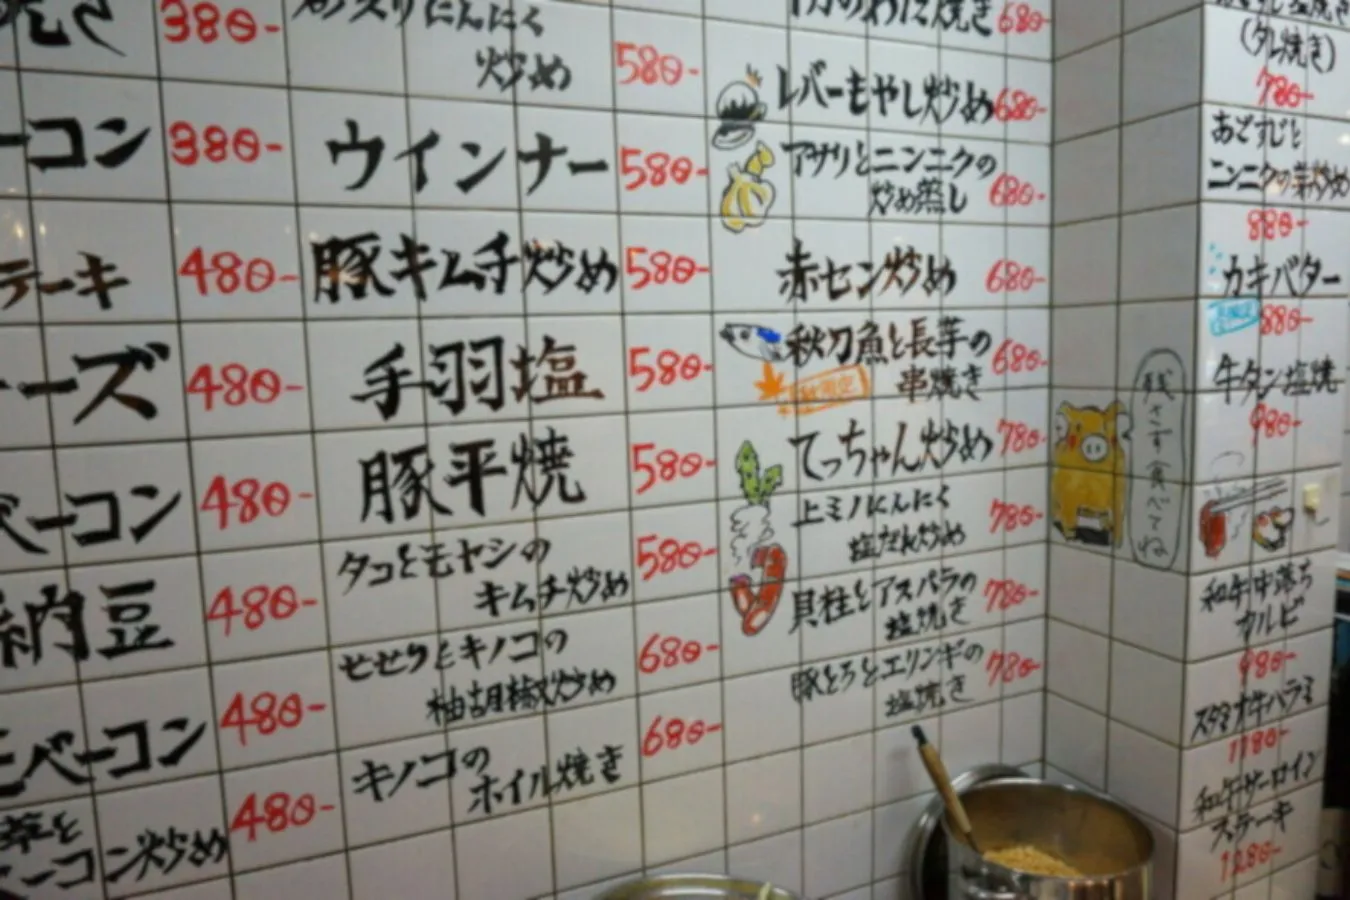 焼き 380-
ーコン 380-
テーキ 480-
ーズ 480-
ベーコン 480-
納豆 480-
ベーコン 480-
ーコン炒め 480-
にんにく
炒め 580-
ウインナー 580-
豚キムチ炒め 580-
手羽塩 580-
豚平焼 580-
タコとモヤシの
キムチ炒め 580-
せせりとキノコの
柚胡椒炒め 680-
キノコの
ホイル焼き 680-
焼き 680-
レバーもやし炒め 680-
アサリとニンニクの
炒め蒸し 680-
赤セン炒め 680-
秋刀魚と長芋の
串焼き 680-
てっちゃん炒め 780-
上ミノにんにく
塩だれ炒め 780-
貝柱とアスパラの
塩焼き 780-
豚とろとエリンギの
塩焼き 780-
残さず食べてね
塩焼き
(タレ焼き)
780-
あごすじと
ニンニクの芽炒め
880-
カキバター
880-
牛タン塩焼
980-
和牛中落ち
カルビ
980-
スタミナ牛ハラミ
1180-
和牛サーロイン
ステーキ
1280-